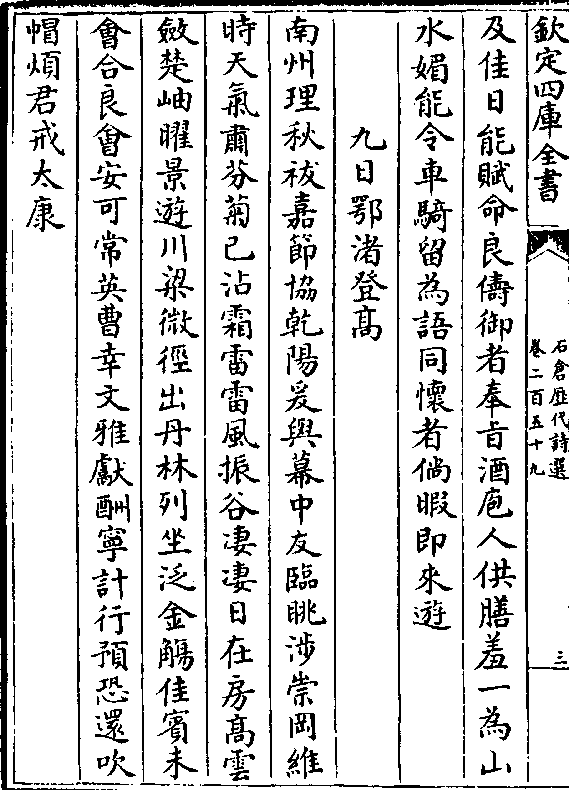 欽定四庫全書
石倉歷代詩選
卷二百五十九
三
及佳日能賦命良儔御者奉旨酒庖人供膳羞一為山
水媚能令車騎留為語同懷者倘暇即來遊
九日鄂渚登髙
南州理秋祓嘉節協乾陽爰與幕中友臨眺涉崇岡維
時天氣肅芬菊已沾霜雷雷風振谷凄凄日在房髙雲
斂楚岫曜景遊川梁微徑出丹林列坐泛金觴佳賓未
會合良會安可常英曹幸文雅獻酬寧計行預恐還吹
帽煩君戒太康